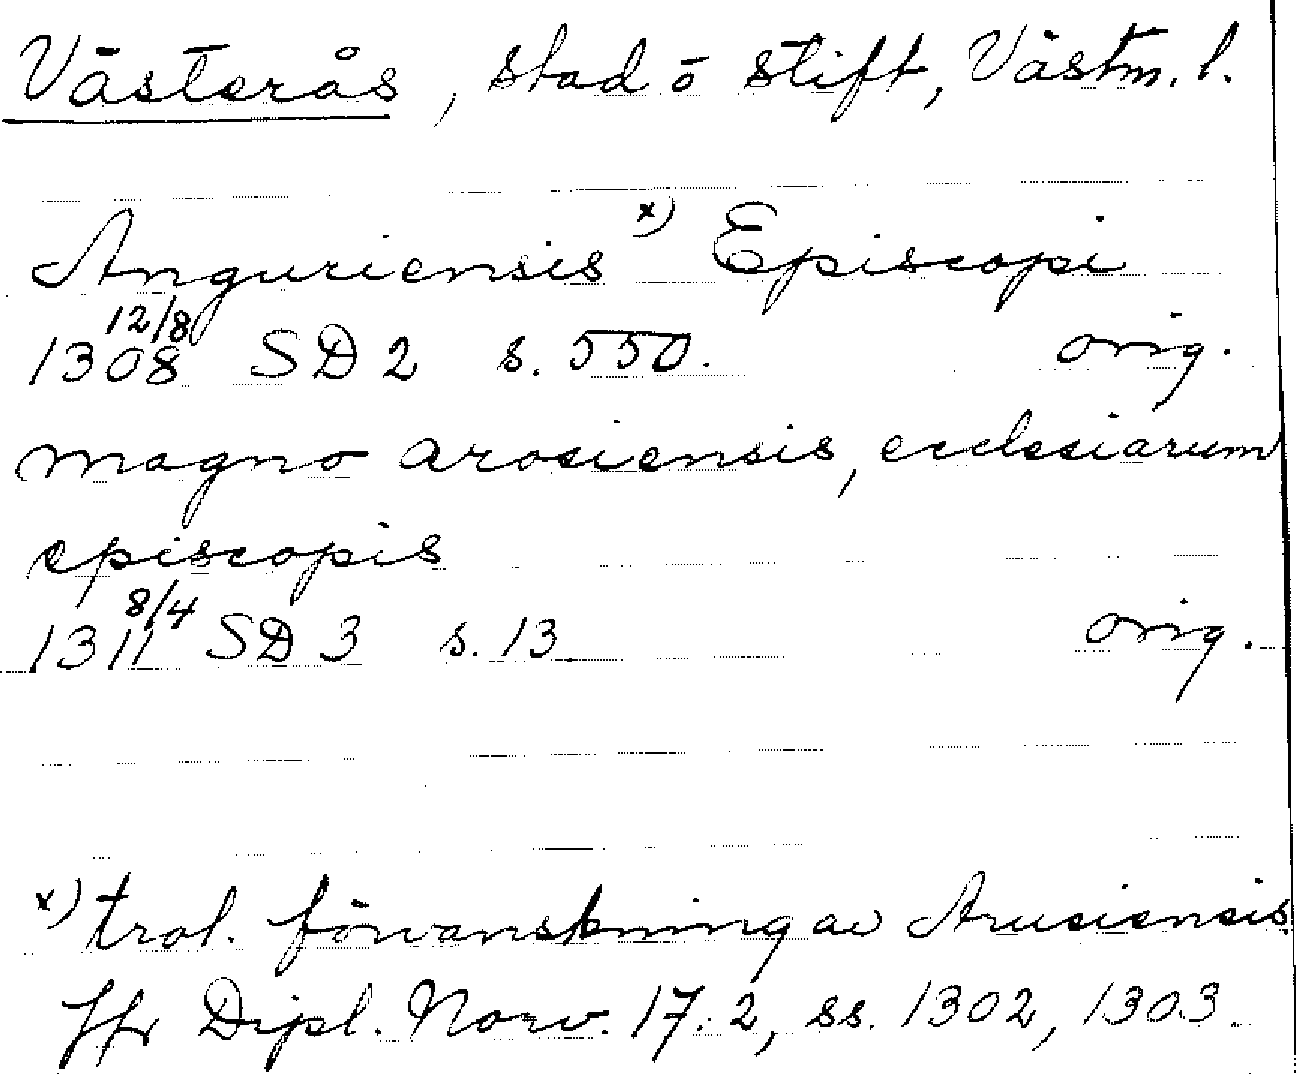 Västerås, stad o stift, Västm. l.
Anguriensis x) Episcopi
12/8
1308 SD 2 s. 550. orig.
magno arosiensis, ecclesiarum
episcopis
8/4
1311 SD 3 s. 13 orig.
x) trol. förvanskning av Arusiensis
Jfr Dipl. Norv. 17.2, ss. 1302, 1303.